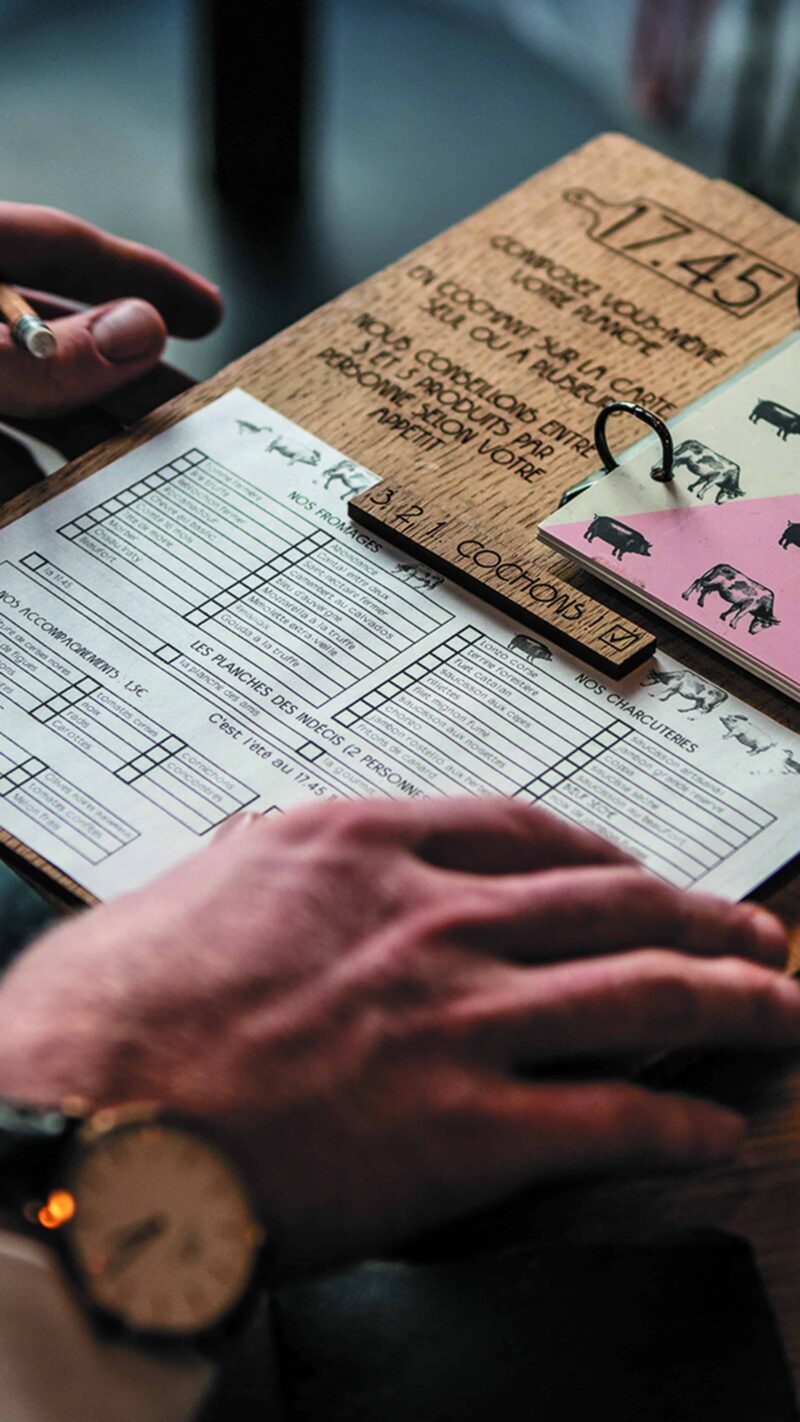 17.45
COMPOSEZ VOUS-MÊME
VOTRE PLANCHE
EN COCHANT SUR LA CARTE
SEUL OU À PLUSIEURS
NOUS CONSEILLONS ENTRE
3 ET 5 PRODUITS PAR
PERSONNE SELON VOTRE
APPÉTIT
3, 2, 1, COCHONS !
NOS FROMAGES
Rocamadour
Chèvre au basilic
Comté 16 mois
Tête de moine
Morbier
Ossau Iraty
Beaufort
Abondance
Cantal entre deux
Saint-nectaire fermier
Camembert au calvados
Bleu d'auvergne
Mozzarella à la truffe
Mimolette extra-vieille
Gouda à la truffe
LES PLANCHES DES INDÉCIS (2 PERSONNES
la 17.45
la planche des amis
C'est l'été au 17.45
NOS ACCOMPAGNEMENTS : 1,5€
de figues
noix
radis
Carottes
tomates cerises
cornichons
concombres
Olives noires
tomates confites
Melon frais
NOS CHARCUTERIES
lonzo corse
terrine forestière
fuet catalan
rillettes
saucisson aux cèpes
filet mignon fumé
saucisson aux noisettes
chorizo
jambon rostello aux herbes
fritons de canard
saucisson artisanal
jambon grande réserve
coppa
saucisse sèche
saucisson au beaufort
BŒUF SÉCHÉ